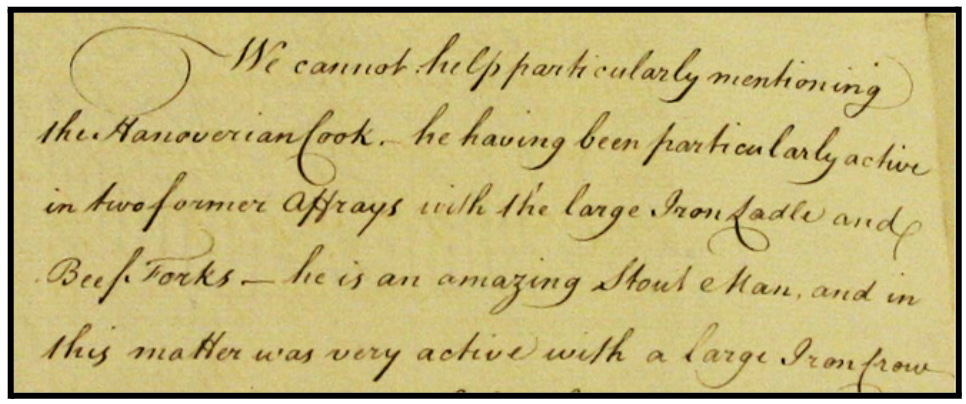 We cannot help particularly mentioning
the Hanoverian Cook. — he having been particularly active
in two former Affrays with the large Iron Ladle and
Beef Forks — he is an amazing Stout Man, and in
this matter was very active with a large Iron Crow